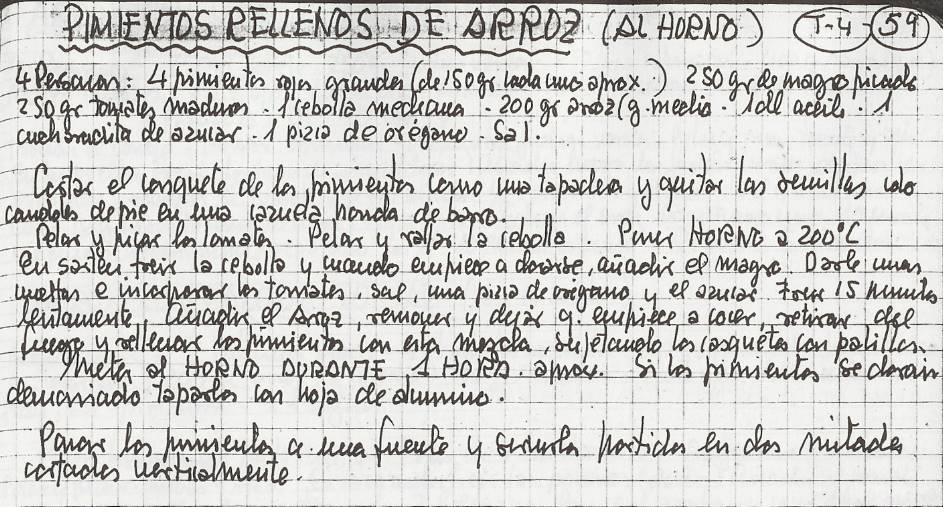 PIMIENTOS RELLENOS DE ARROZ (AL HORNO) T-4 59
4 Personas: 4 pimientos rojos grandes (de 150 gr cada uno aprox.) 250 gr de magro picado
250 gr tomates maduros - 1 cebolla mediana - 200 gr arroz (g. medio - 1 dl aceite - 1
cucharadita de azucar - 1 pizca de orégano - Sal.
Cortar el casquete de los pimientos como una tapadera y quitar las semillas colo
candolos de pie en una cazuela honda de barro.
Pelar y picar los tomates. Pelar y rallar la cebolla. Poner HORNO a 200°C
En sarten freir la cebolla y cuando empiece a dorarse, añadir el magro. Darle unas
vueltas e incorporar los tomates, sal, una pizca de oregano y el azucar. Freir 15 minutos
lentamente, añadir el Arroz, remover y dejar q. empiece a cocer, retirar del
fuego y rellenar los pimientos con esta mezcla, sujetando los casquetes con palillos.
Meter al HORNO DURANTE 1 HORA. aprox. Si los pimientos se doran
demasiado taparlos con hoja de aluminio.
Pasar los pimientos a una fuente y servirlos partidos en dos mitades
cortados verticalmente.